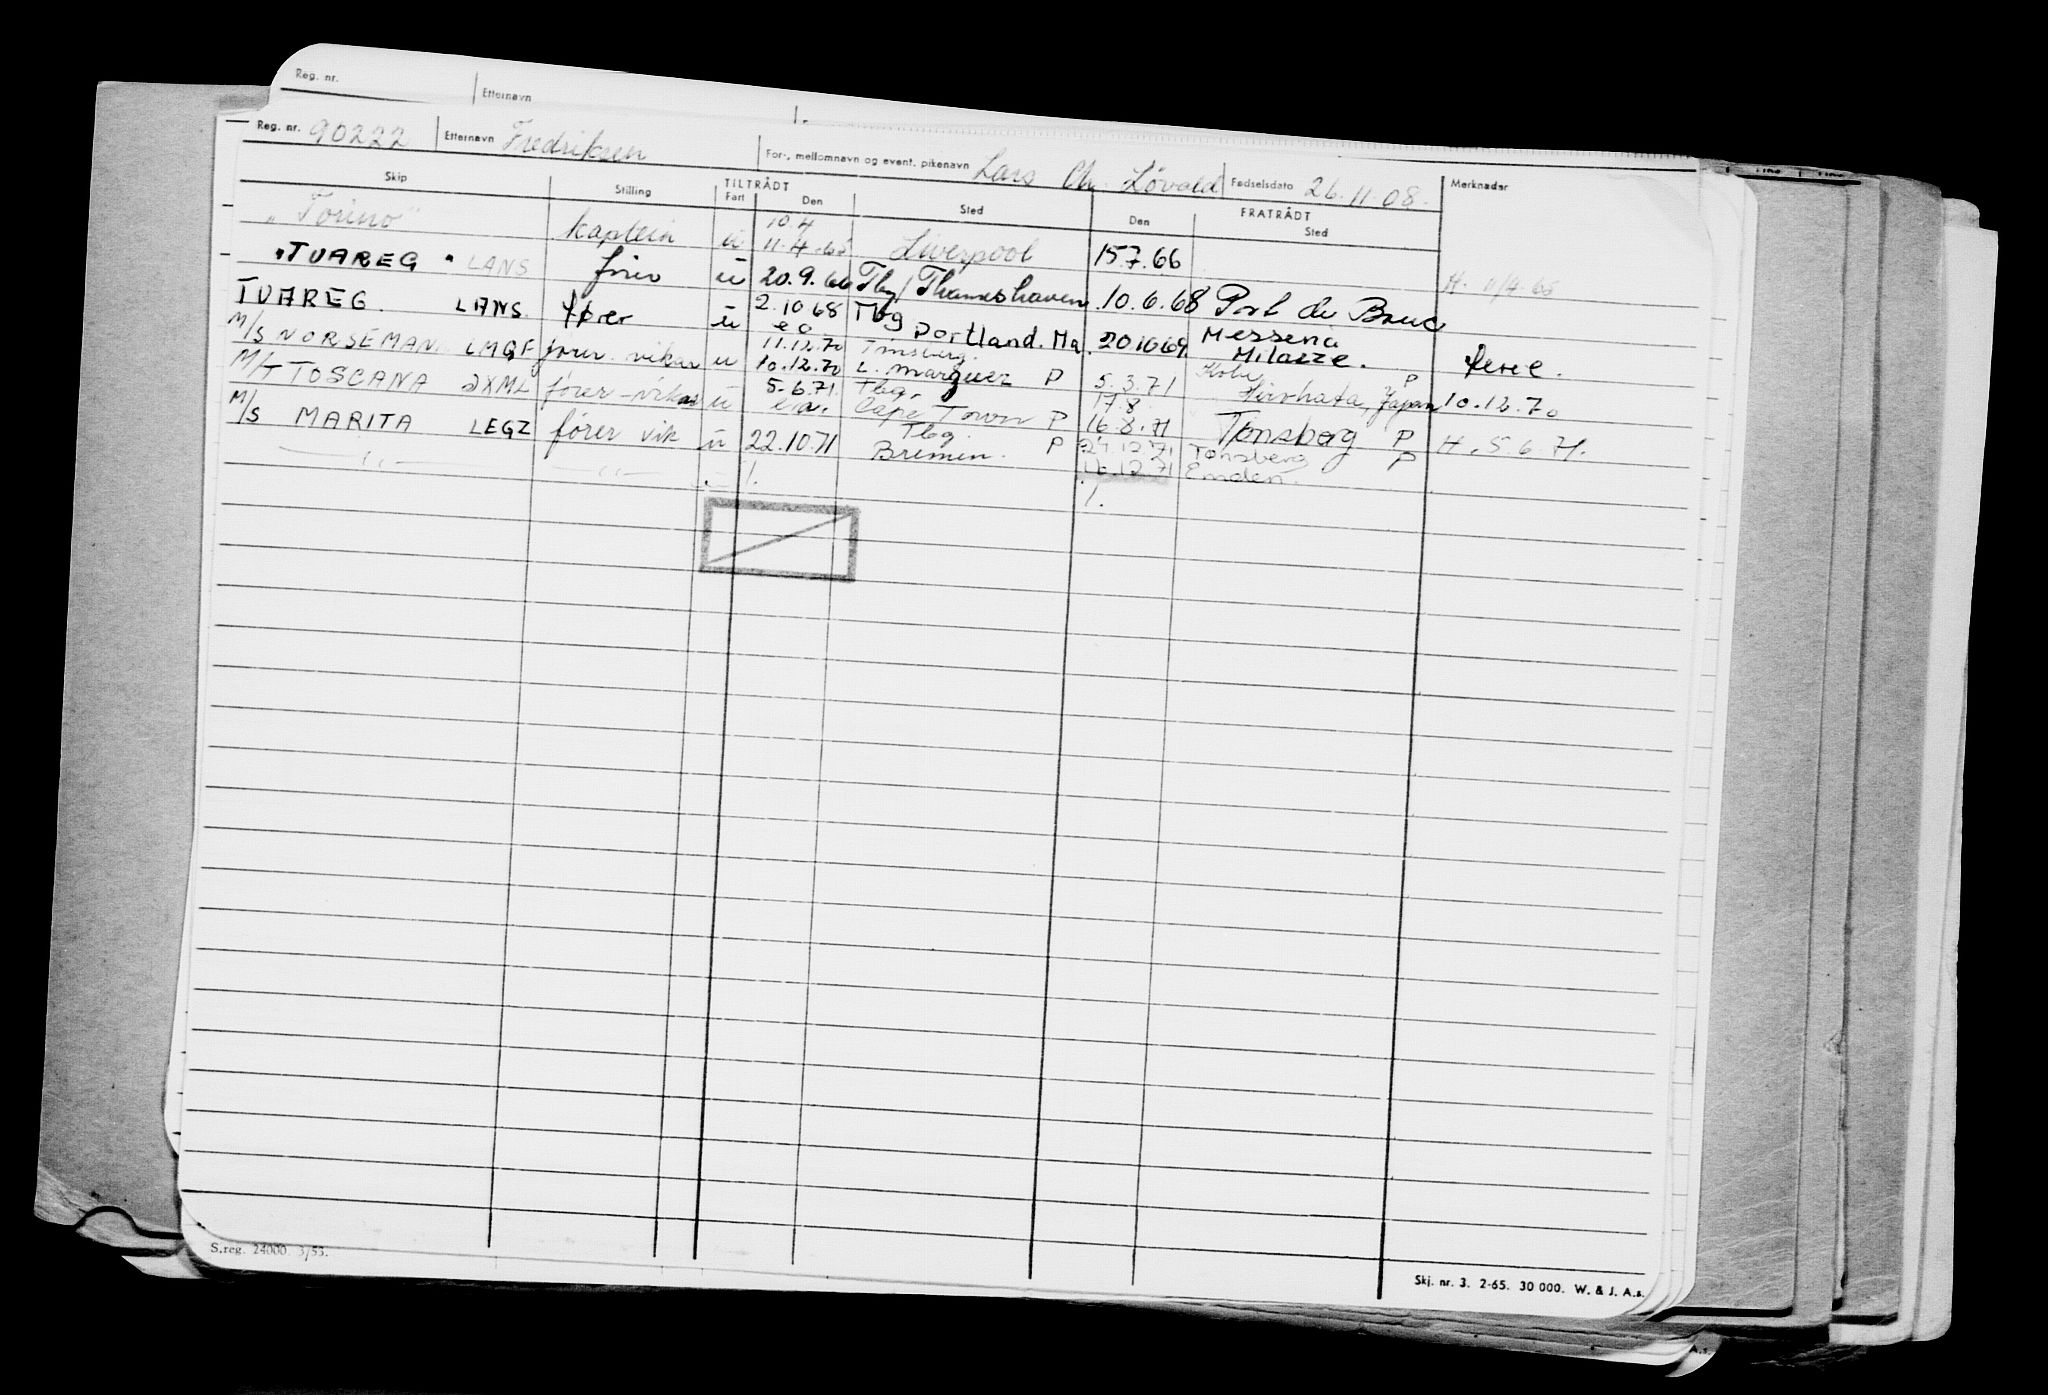 Reg. nr.
Etternavn
Reg. nr. 90222 Etternavn Fredriksen For-, mellomnavn og event. pikenavn Lars Chr. Lövald Fødselsdato 26.11.08. Merknader
Skip Stilling TILTRÅDT FRATRÅDT
Fart Den Sted Den Sted
10.4
"Torino" kaptein u 11.4.65 Liverpool 15.7.66
"TUAREG" LANS fører u 20.9.66 Tbg/Thameshaven 10.6.68 Port de Bouc H. 11/4-65
TUAREG. LANS. fører u 2.10 68 Tbg Portland. Ma. 20.10.69. Messena Milazze.
M/S NORSEMAN. LMGF fører. vikar u 11.12.70 10.12.70 Tønsberg. L. Marquez P 5.3.71 Kobe P
M/T TOSCANA JXML fører-vikar u 5.6.71. Tbg. Cape Town P 17.8. 16.8.71 Tønsberg P 10.12.70
M/S MARITA LEGZ fører vik u 22.10.71 Tbg. Bremen. P 24.12.71 Tønsberg P H. 5.6.71.
— " — — " — - /. 16.12.71 Emden.
/.
S.reg. 24000. 3/53.
Skj. nr. 3. 2-65. 30 000. W. & J. A.s.
A.s.